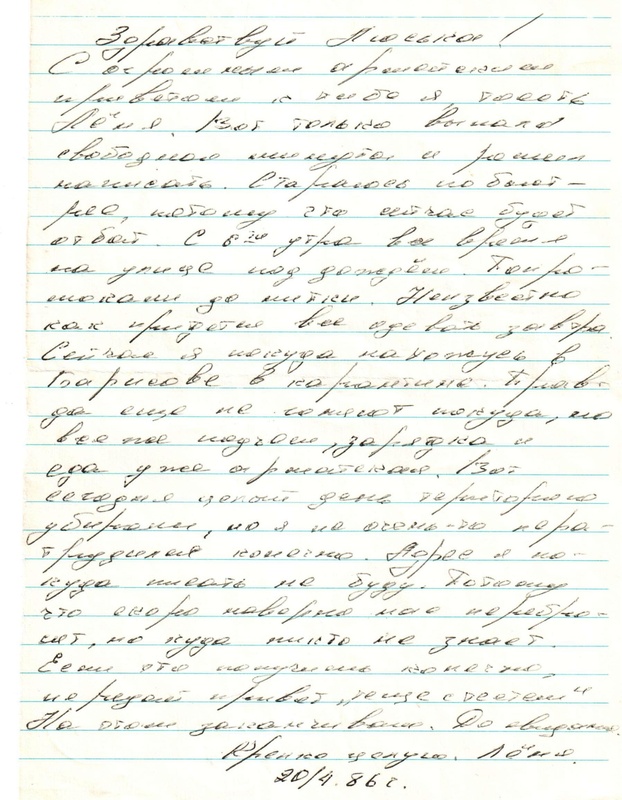 Здравствуй Люська!
С огромным армейским
приветом к тебе я, 
Лёня. Вот только выпала
свободная минута и решил
написать. Стараюсь побыст-
рее, потому что сейчас будет
отбой. С 6ти утра все время
на улице под дождём. Попро-
мокали до нитки. Неизвестно
как придется все одевать завтра.
Сейчас я покуда нахожусь в
Борисове в карантине. Прав-
да еще не гоняют покуда, но
все же подъем, зарядка и
еда уже армейская. Вот
сегодня целый день территорию
убирали, но я не очень-то пере-
трудился конечно. Адрес я по-
куда писать не буду. Потому
что скоро наверно нас перебро-
сят, но куда никто не знает.
Если это получишь конечно,
передай привет „теще с тестем"
На этом заканчиваю. До свидания.
Крепко целую. Лёня.
20/4.86 г.